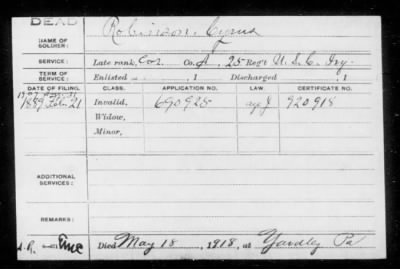 DEAD
NAME OF SOLDIER: Robinson, Cyrus
SERVICE: Late rank, Cor. Co. A, 25 Reg't U.S.C. Inf.
TERM OF SERVICE: Enlisted , 1 Discharged , 1
DATE OF FILING. CLASS. APPLICATION NO. LAW. CERTIFICATE NO.
1889 Feb 21 Invalid, 690925 920918
Widow,
Minor,
ADDITIONAL SERVICES:
REMARKS:
Died May 18, 1918, at Yardley Pa